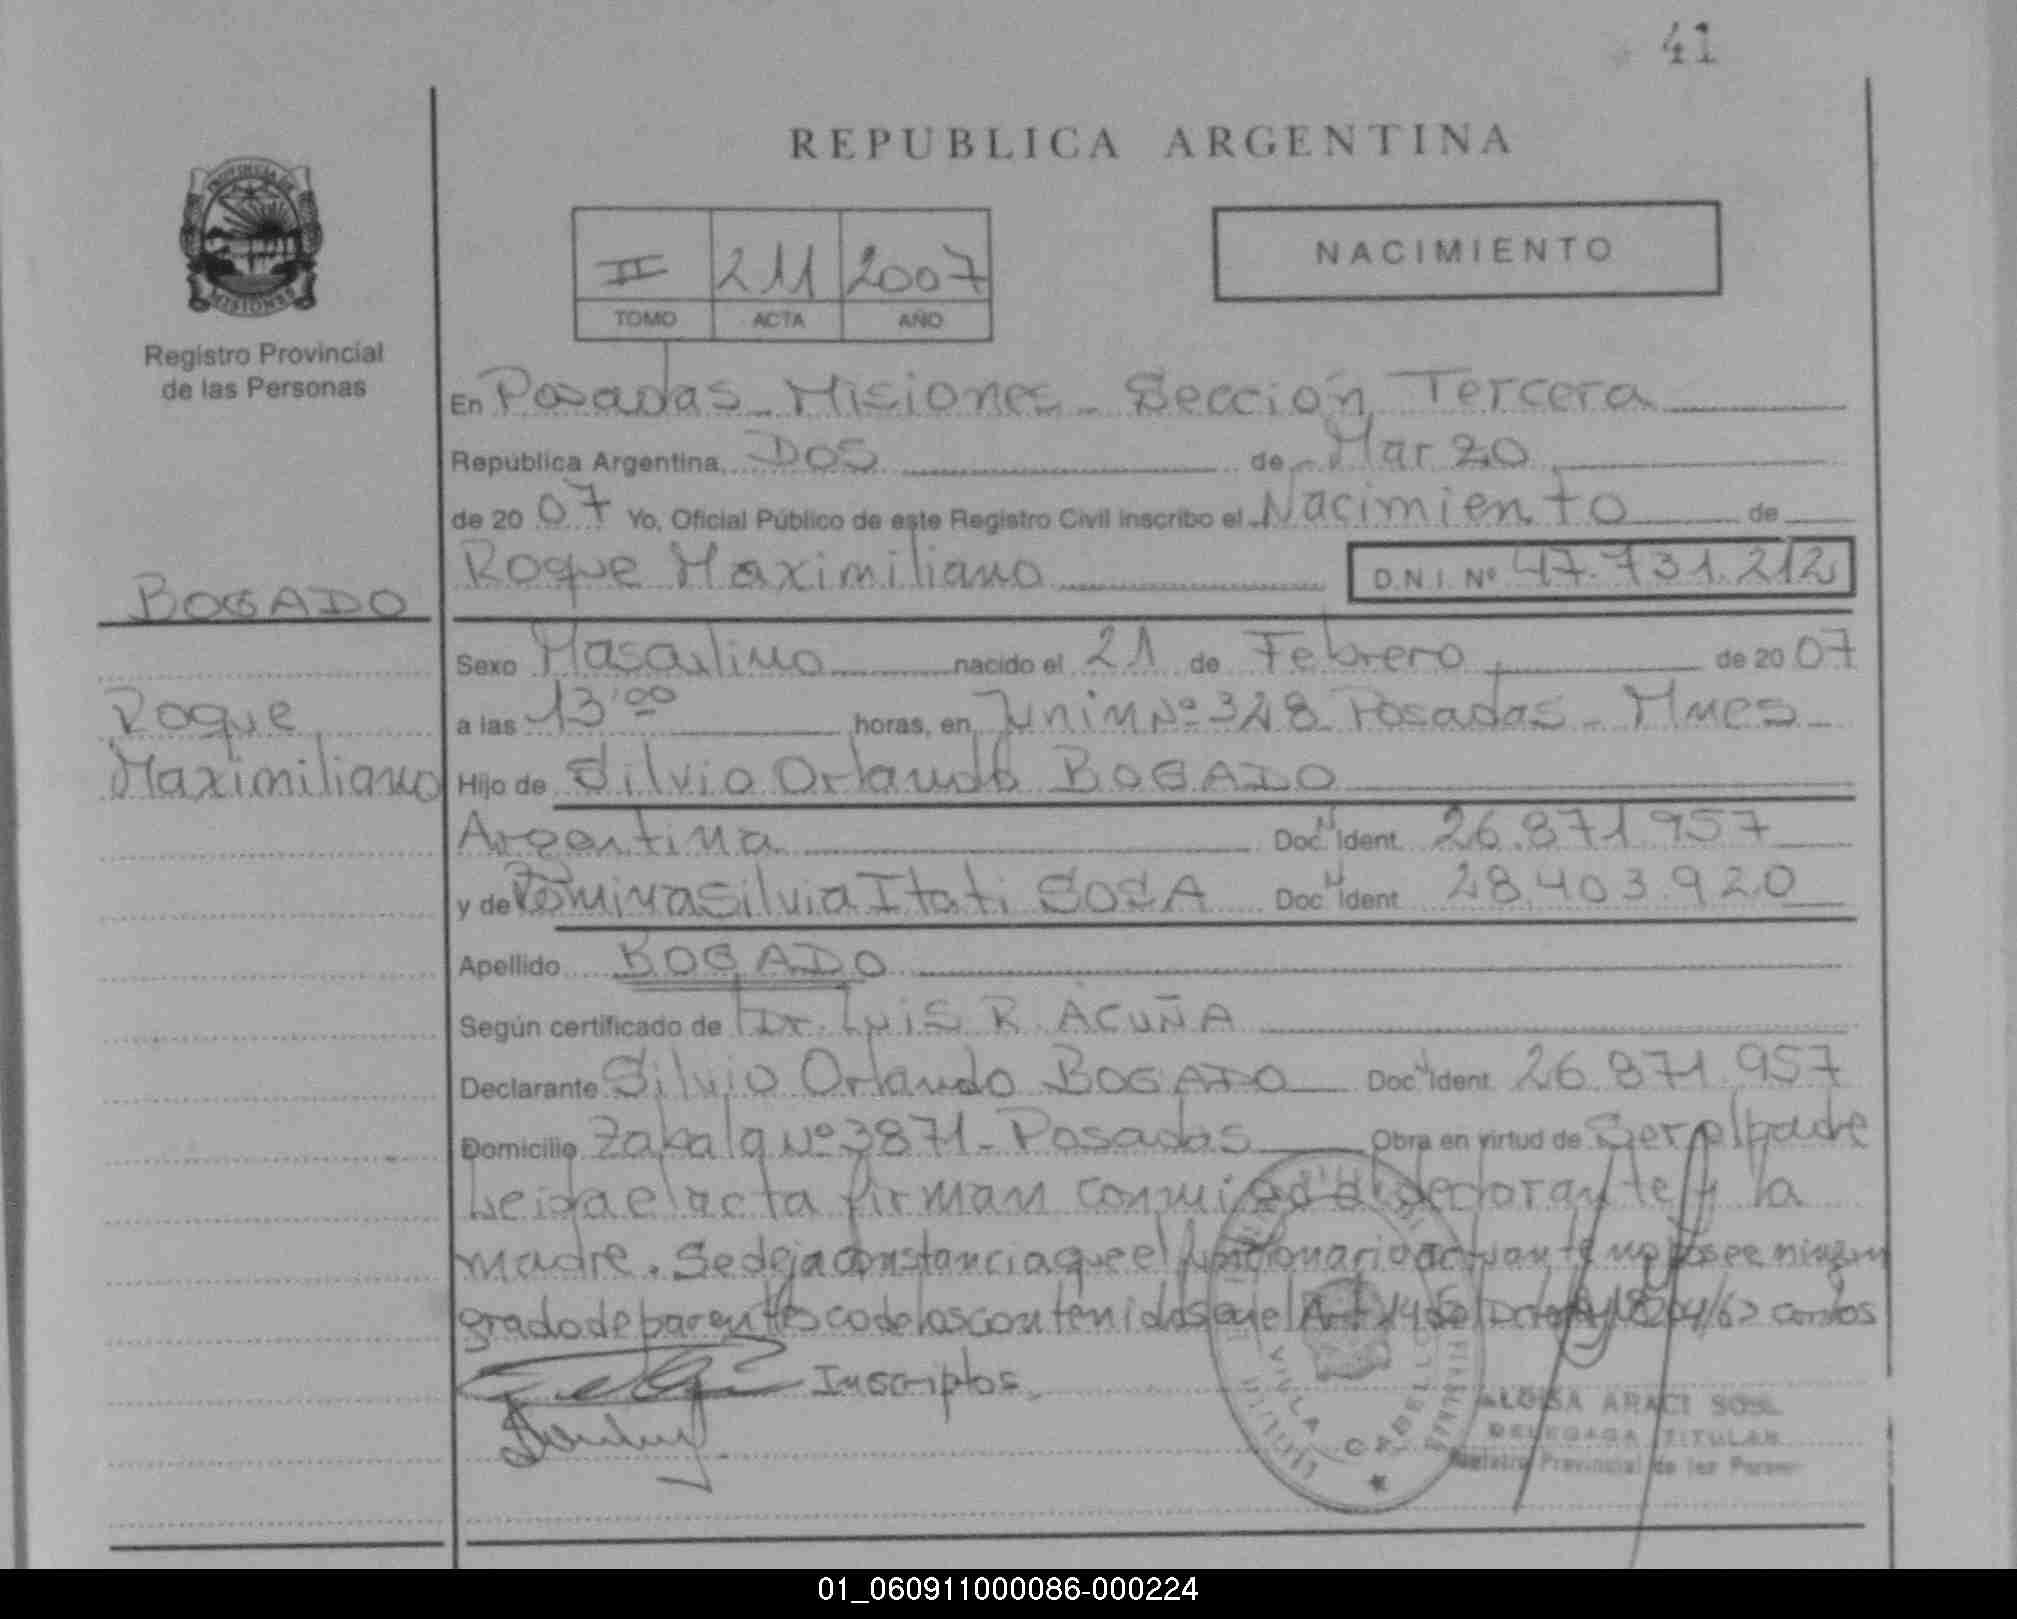 41
REPUBLICA ARGENTINA
PROVINCIA DE
MISIONES
Registro Provincial
de las Personas
II 211 2007
TOMO ACTA AÑO
NACIMIENTO
En Posadas - Misiones - Sección Tercera
República Argentina, Dos de Marzo
de 2007 Yo, Oficial Público de este Registro Civil inscribo el Nacimiento de
Roque Maximiliano D.N.I. Nº 47.731.212
BOGADO
Roque
Maximiliano
Sexo Masculino nacido el 21 de Febrero de 2007
a las 13'00 horas, en Junin Nº 328 Posadas - Mnes -
Hijo de Silvio Orlando BOGADO
Argentina Doc N Ident. 26.871.957
y de Romina Silvia Itati SOSA Doc N Ident 28.403.920
Apellido BOGADO
Según certificado de Dr. Luis R ACUÑA
Declarante Silvio Orlando BOGADO Doc N Ident 26.871.957
Domicilio Zabala Nº 3871 - Posadas Obra en virtud de Ser el padre
Leida el acta firman conmigo el declarante y la
madre. Se deja constancia que el funcionario actuante no posee ningun
grado de parentesco de los contenidos en el Art 14 del 8204/63 con los
Inscriptos.
VILLA CABELLO
ARACI SOSA
DELEGADA TITULAR
Registro Provincial de las Person
01_060911000086-000224